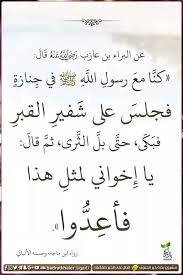 عن البراء بن عازب رَضِيَ اللَّهُ عَنْهُ قال:
«كنَّا معَ رسولِ اللَّهِ ﷺ في جنازةٍ
فجلسَ على شَفيرِ القبرِ
فبَكَى، حتَّى بلَّ الثَّرى، ثمَّ قالَ:
يا إخواني لمثلِ هذا
فأعِدُّوا».
رواه ابن ماجه، وحسنه الألباني